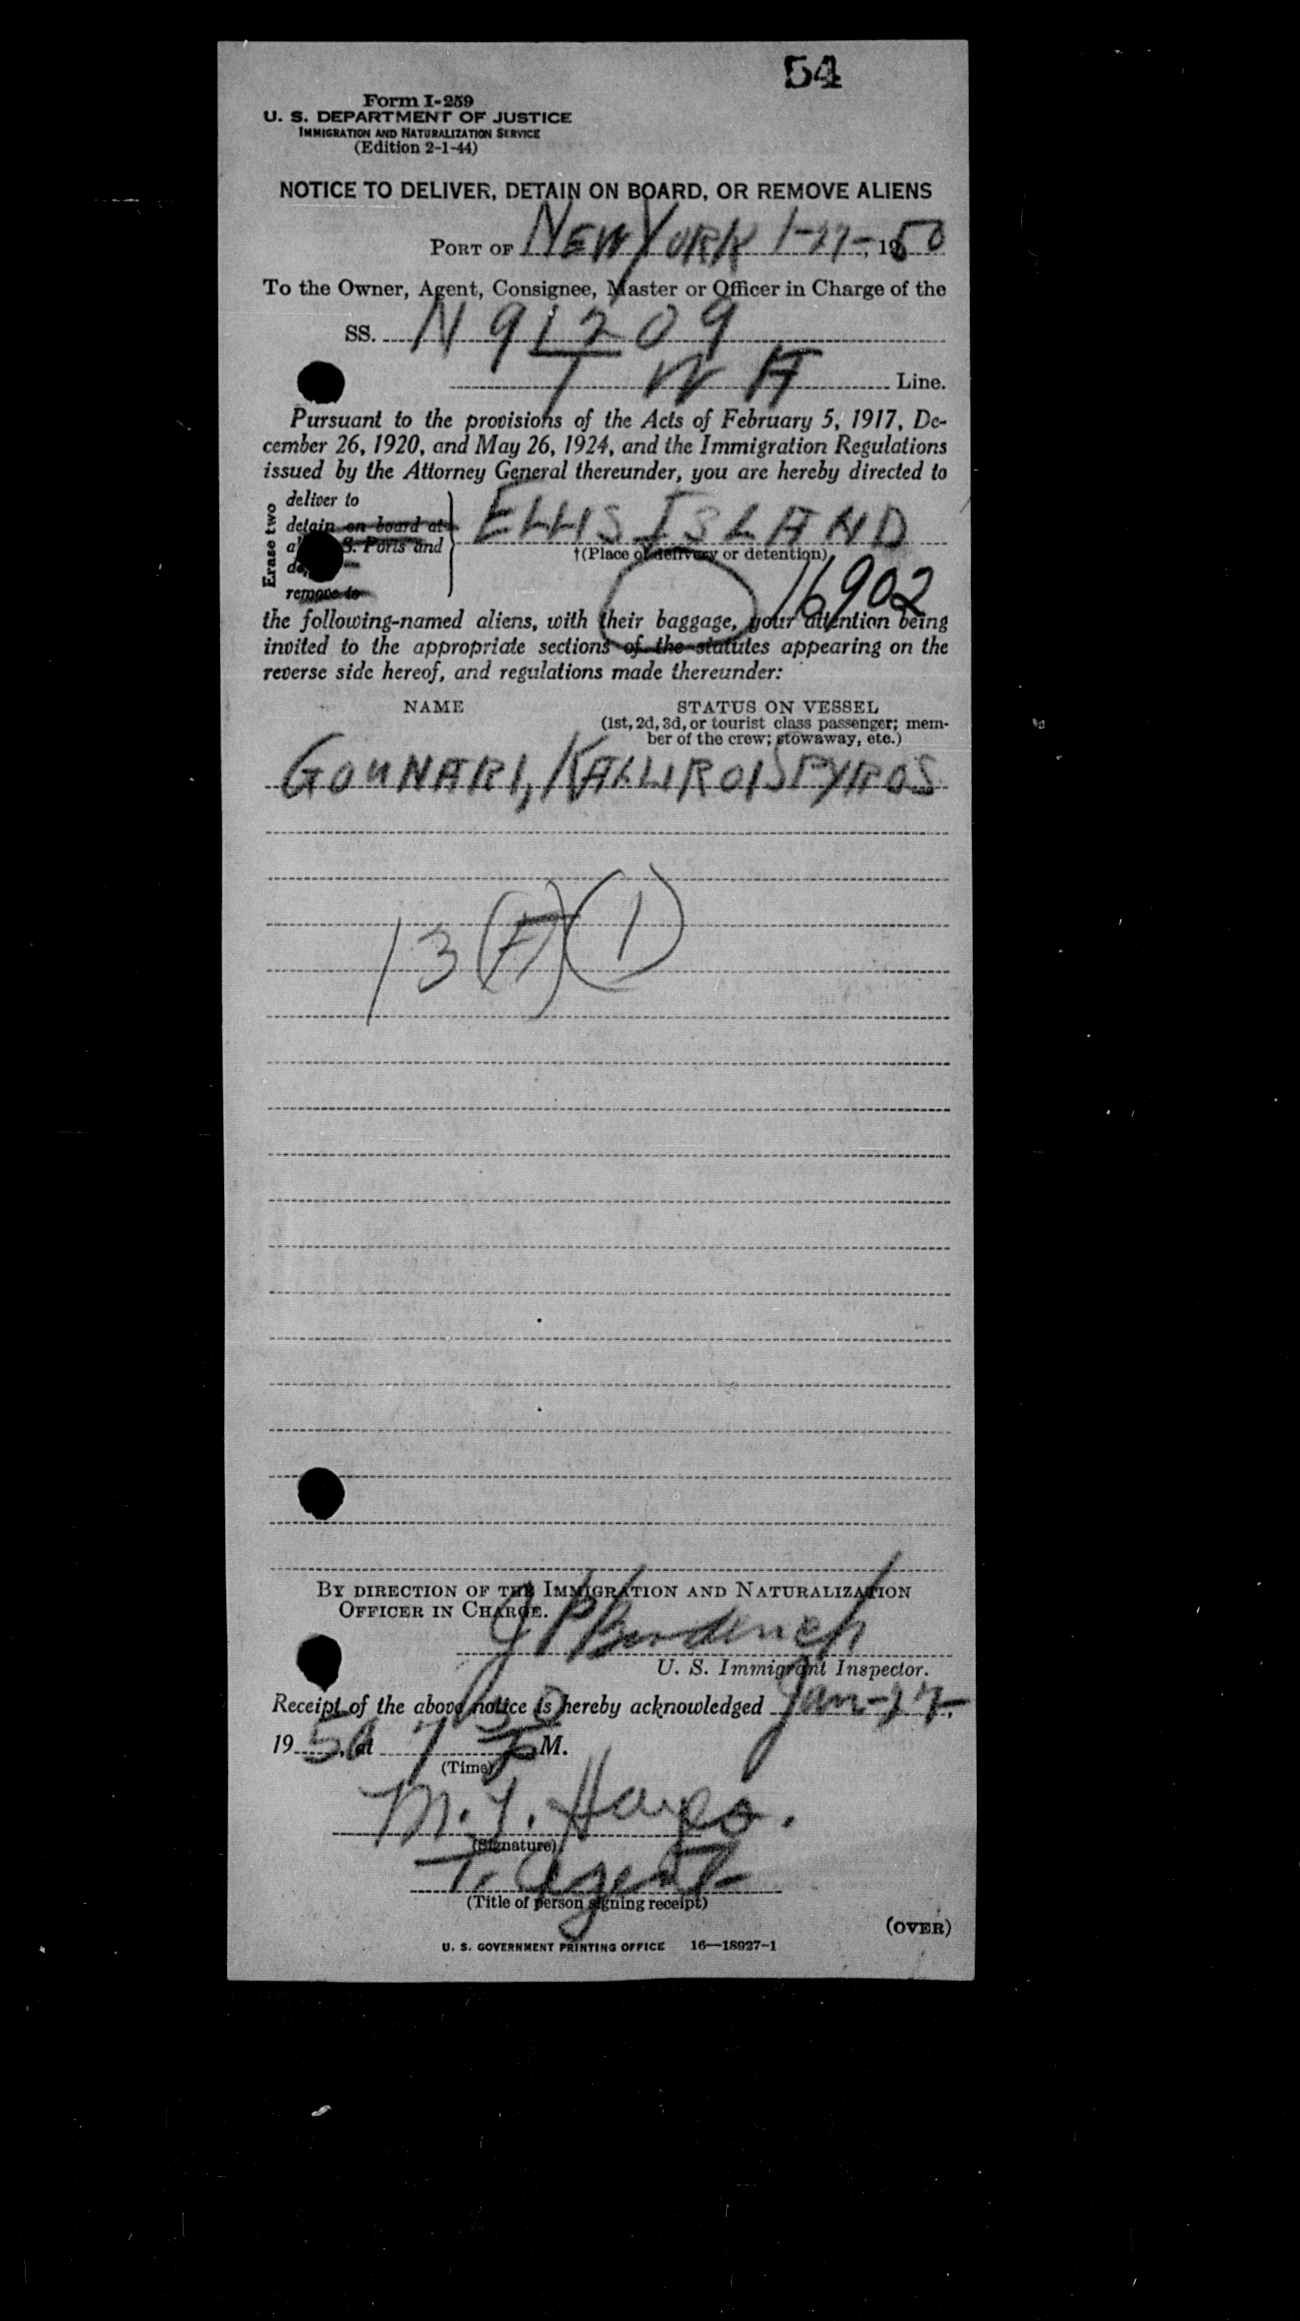 54
Form I-259
U. S. DEPARTMENT OF JUSTICE
IMMIGRATION AND NATURALIZATION SERVICE
(Edition 2-1-44)
NOTICE TO DELIVER, DETAIN ON BOARD, OR REMOVE ALIENS
PORT OF NEW YORK 1-27-, 1950
To the Owner, Agent, Consignee, Master or Officer in Charge of the
SS. N 91209
T W A Line.
Pursuant to the provisions of the Acts of February 5, 1917, De-
cember 26, 1920, and May 26, 1924, and the Immigration Regulations
issued by the Attorney General thereunder, you are hereby directed to
Erase two
deliver to
detain on board at
S. Ports and
remove to
ELLIS ISLAND
†(Place of delivery or detention)
16902
the following-named aliens, with their baggage, your attention being
invited to the appropriate sections of the statutes appearing on the
reverse side hereof, and regulations made thereunder:
NAME STATUS ON VESSEL
(1st, 2d, 3d, or tourist class passenger; mem-
ber of the crew; stowaway, etc.)
GOUNARI, KALLIROI SPYROS
13 (F) (1)
BY DIRECTION OF THE IMMIGRATION AND NATURALIZATION
OFFICER IN CHARGE.
J P
U. S. Immigrant Inspector.
Receipt of the above notice is hereby acknowledged Jan-27-,
1950, at 7 30 M.
(Time)
M. Hayes.
(Signature)
T. Agent
(Title of person signing receipt)
(OVER)
U. S. GOVERNMENT PRINTING OFFICE 16—18927-1